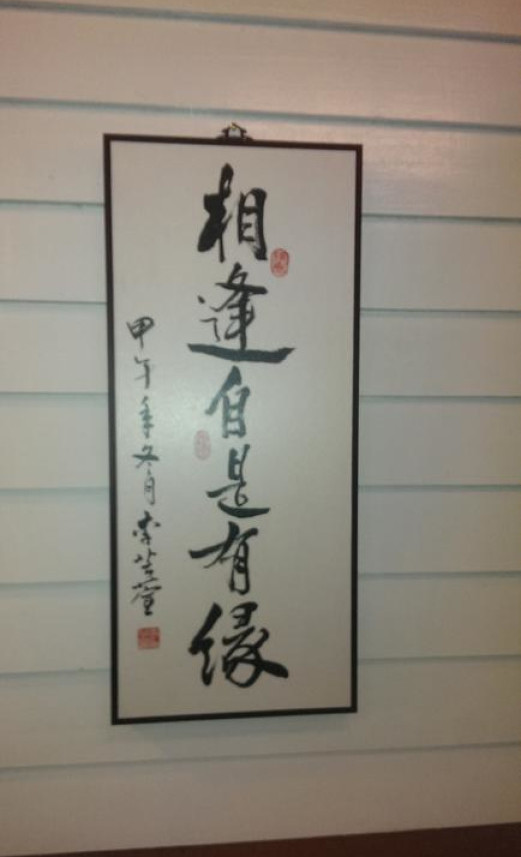 相逢自是有缘
甲午年冬月